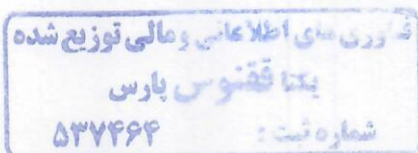 فناوری های اطلاعاتی و مالی توزیع شده
یکتا ققنوس پارس
شماره ثبت : ۵۳۷۴۶۴